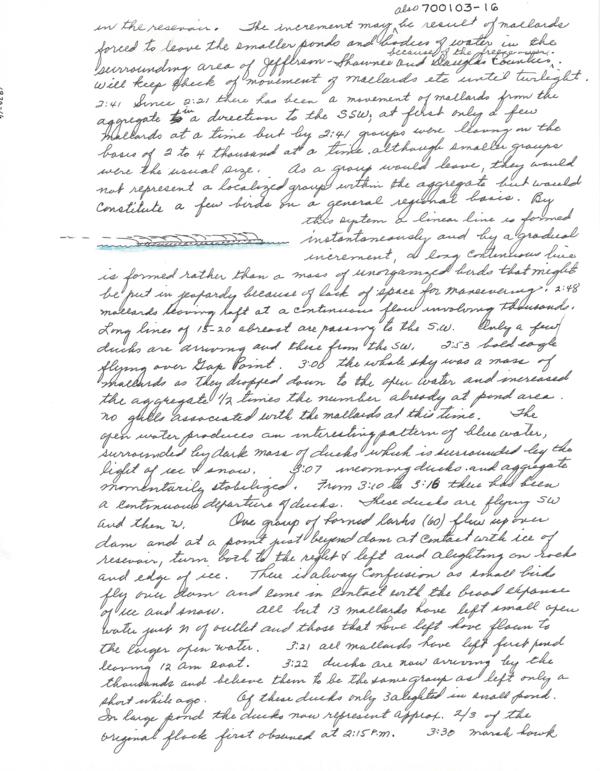 also 700103-16
in the resevoir. The increment may be result of mallards
forced to leave the smaller ponds and bodies of water in the
because of the freeze-over.
surrounding area of Jefferson-Shawnee and Douglas Counties.
Will keep check of movement of mallards etc until twilight.
2:41 Since 2:21 there has been a movement of mallards from the
aggregate in a direction to the SSW; at first only a few
mallards at a time but by 2:41 groups were leaving on the
basis of 2 to 4 thousand at a time although smaller groups
were the usual size. As a group would leave, they would
not represent a localized group within the aggregate but would
constitute a few birds on a general regional basis. By
this system a linear line is formed
instantaneously and by a gradual
increment, a long continuous line
is formed rather than a mass of unorganized birds that might
be put in jeopardy because of lack of space for maneuvering. 2:48
mallards leaving loft at a continuous flow involving thousands.
Long lines of 15-20 abreast are passing to the S.W. Only a few
ducks are arriving and these from the SW. 2:53 bald eagle
flying over Gap Point. 3:06 the whole sky was a mass of
mallards as they dropped down to the open water and increased
the aggregate 1/2 times the number already at pond area.
no gulls associated with the mallards at this time. The
open water produces an interesting pattern of blue water,
surrounded by dark mass of ducks which is surrounded by the
light of ice & snow. 3:07 incoming ducks and aggregate
momentarily stabilized. From 3:10 to 3:16 there has been
a continuous departure of ducks. These ducks are flying SW
and then W. One group of horned larks (60) flew up over
dam and at a point just beyond dam at contact with ice of
resevoir, turn both to the right & left and alighting on rocks
and edge of ice. There is alway confusion as small birds
fly over dam and come in contact with the broad expanse
of ice and snow. all but 13 mallards have left small open
water just N of outlet and those that have left have flown to
the larger open water. 3:21 all mallards have left first pond
leaving 12 am coot. 3:22 ducks are now arriving by the
thousands and believe them to be the same group as left only a
short while ago. Of these ducks only 3 alighted in small pond.
In large pond the ducks now represent approx. 2/3 of the
original flock first observed at 2:15 P.M. 3:30 marsh hawk